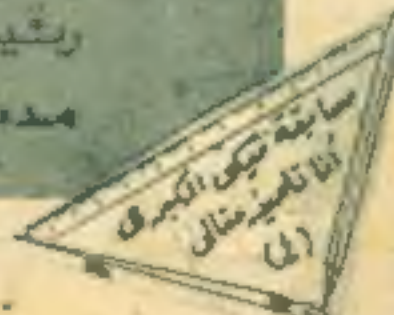 مسابقة ميكى الكبرى
أنا تلميذ مثالى
(٤)